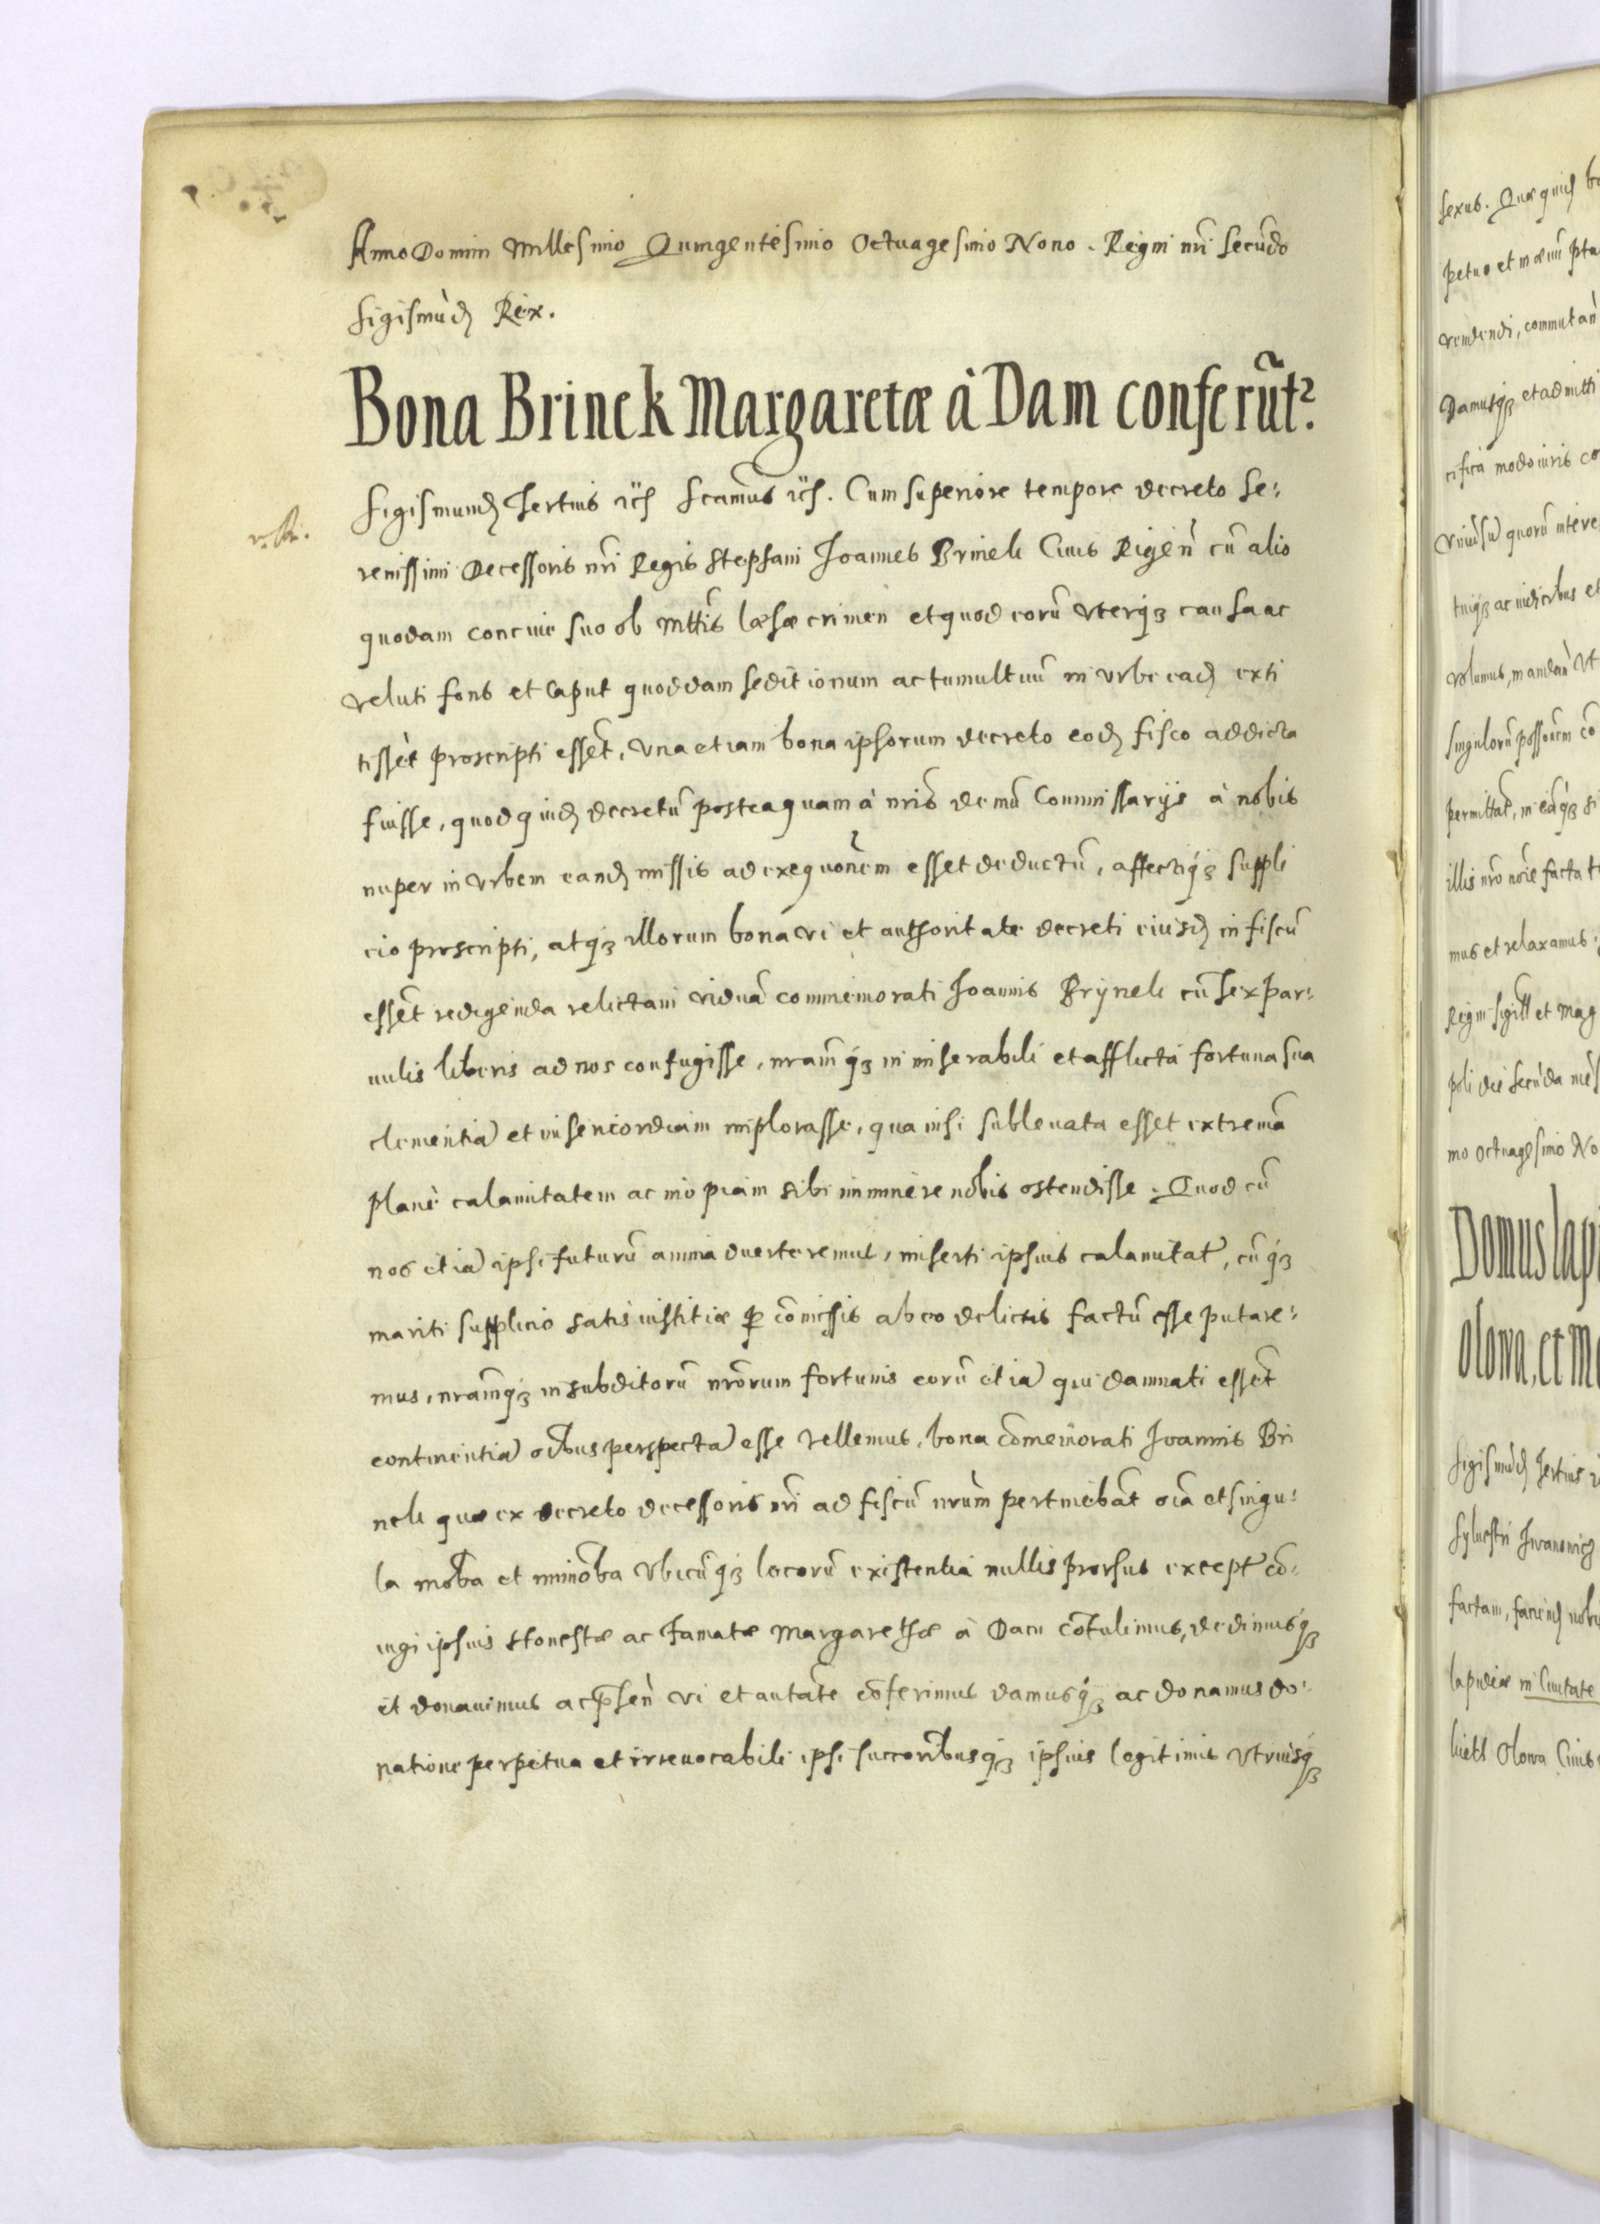 Anno Domini Millesimo Quingentesimo Octuagesimo Nono. Regni nr̃i secũdo
Sigismùd Rex.
Bona Brinck Margaretæ à Dam conferũt.
Sigismund Tertius Scamus. Cum superiore tempore decreto Se:
renissimi Decessoris nr̃i Regis Stephani Joannes Brinck Ciuis Rigeñ cũ alio
quodam conciue suo ob Mttis læsæ crimen et quod eorũ vterq; causa ac
veluti fons et caput quoddam seditionum ac tumultuũ in vrbe ead exti
tissèt proscripti essẽt, vna etiam bona ipsorum decreto eod fisco addicta
fuisse, quod quid decretũ posteaquam à nr̃is demũ Commissarijs à nobis
nuper in vrbem eand missis ad exequoñem esset deductũ, affectiq; suppli
cio proscripti, atq; illorum bona vi et authoritate decreti eiusd in fiscũ
essẽt redigenda relictam viduã commemorati Joannis Brÿnck cũ sex par:
uulis liberis ad nos confugisse, nr̃amq; in miserabili et afflicta fortuna sua
clementiã et misericordiam implorasse, qua nisi subleuata esset extremã
planè calamitatem ac inopiam sibi imminere nobis ostendisse. Quod cũ
nos etiã ipsi futurũ animaduerteremus, miserti ipsius calamitat, cũq;
mariti supplicio satis iustitiæ p comissis ab eo delictis factũ esse putare:
mus, nr̃amq; in subditorũ nr̃orum fortunis eorũ etiã qui damnati essẽt
continentiã oĩbus perspectã esse vellemus, bona cõmemorati Joannis Bri
nck quæ ex decreto decessoris nr̃i ad fiscũ nr̃um pertinebãt oĩa et singu:
la mobĩa et immobĩa vbicũq; locorũ existentia nullis prorsus except cõ:
iugi ipsius Honestæ ac Famatæ Margarethæ à Dam cõtulimus, dedimusq;
et donauimus ac p̃señ vi et autate cõferimus damusq; ac donamus do:
natione perpetua et irreuocabili ipsi succoribusq; ipsius legitimis vtriusq;
sexus. Quæ quid
petuo et in æuũ
vendendi, commutañ
Damusq; et admitti
modo iuris
quorũ intere
tuiq; ac iudicibus et
volumus, mandañ vt
singulorũ possoñem
permittãt, in eãq;
illis nr̃o noĩe facta
mus et relaxamus
Regni sigill et Mag
poli die secũda
mo octuagesimo No
Domus lapi
olowa, et M
Sigismũd Tertius
Syluestri Iwanowicz
factam, faciend
lapideæ in Ciuitate
Olowa Ciuis